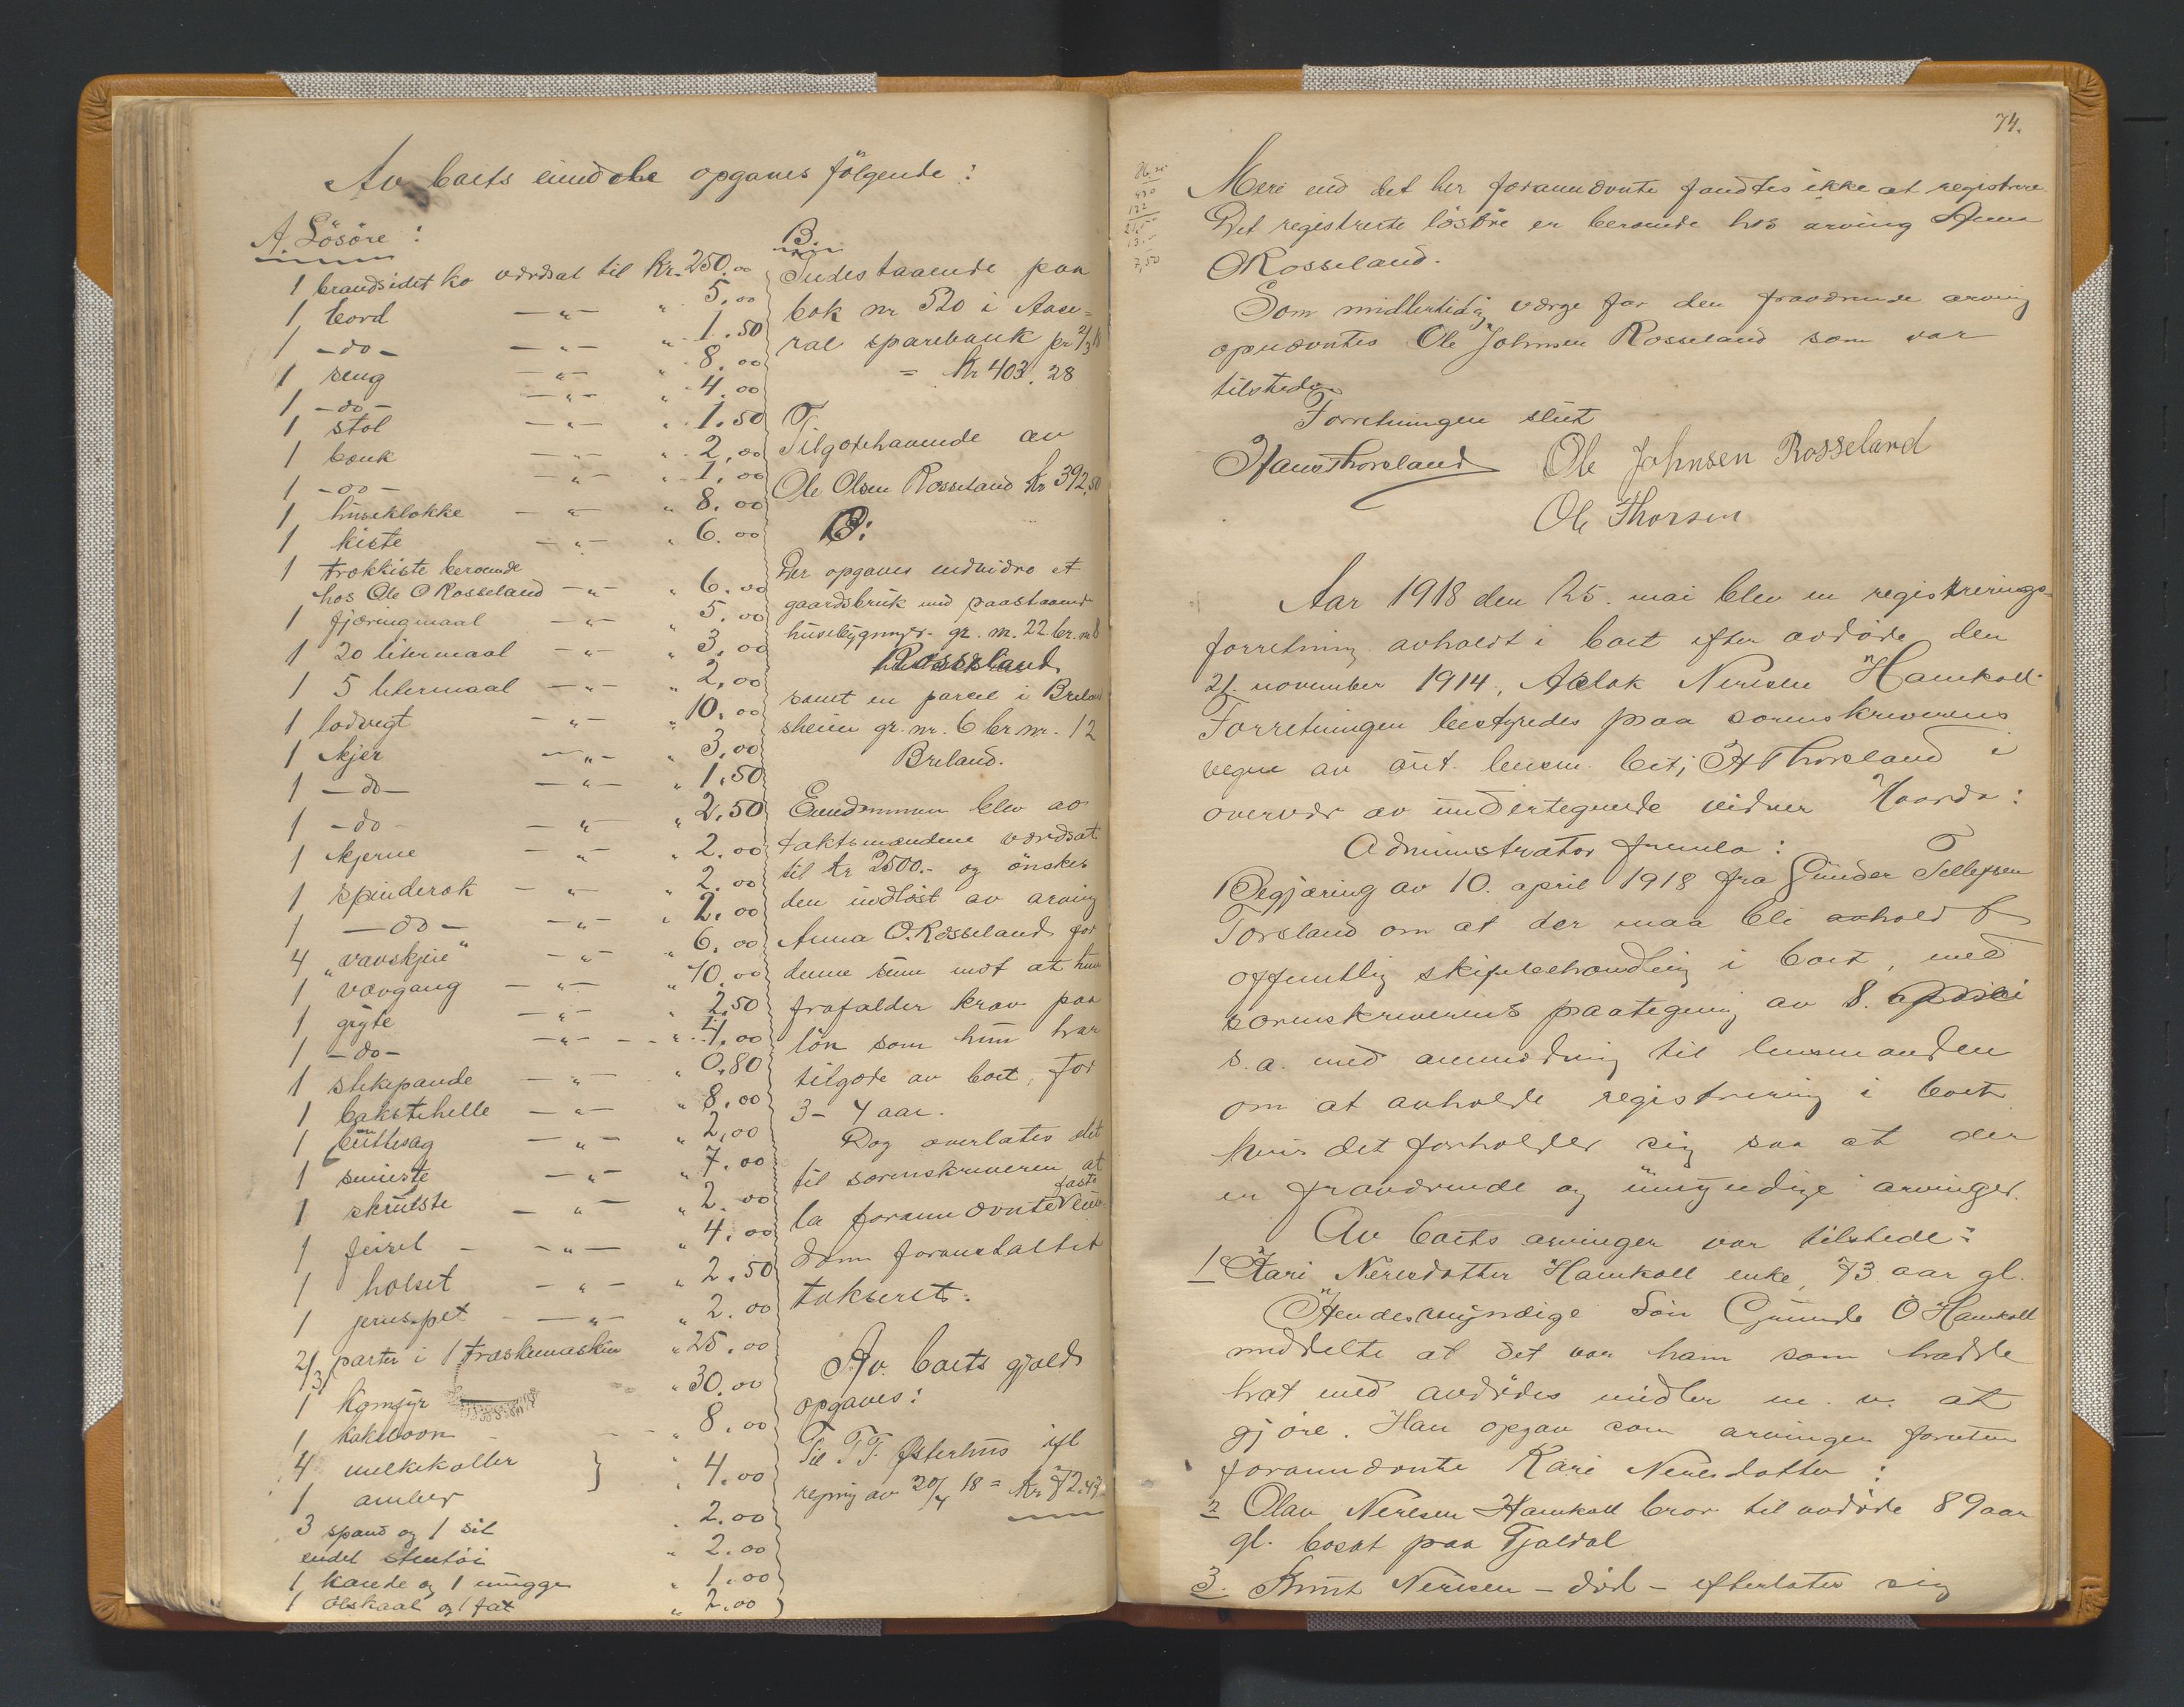 Av boets eiendele opgaves følgende:
A. Løsøre:
1 brandsidet ko værdsat til Kr. 250.00
1 bord —"— " 5.00
1 -do- —"— " 1.50
1 seng —"— " 8.00
1 -do- —"— " 4.00
1 stol —"— " 1.50
1 bænk —"— " 2,00
1 -do- —"— " 1,00
1 huseklokke —"— " 8.00
1 kiste —"— " 6.00
1 trækkiste beroende
hos Ole O Rosseland —"— " 6.00
1 fjæringmaal —"— " 5.00
1 20 litermaal —"— " 3,00
1 5 litermaal —"— " 2,00
1 lodvegt —"— " 10.00
1 kjer —"— " 3,00
1 -do- —"— " 1,50
1 -do- —"— " 2,50
1 kjerne —"— " 2.00
1 spinderok —"— " 2.00
1 -do- —"— " 2.00
4 "vavskjei" —"— " 6.00
1 vævgang —"— " 10.00
1 gryte —"— " 2.50
1 -do- —"— " 4.00
1 stekepande —"— " 0.80
1 bakstehelle —"— " 8.00
1 buttesag —"— " 2,00
1 smiste —"— " 7.00
1 skruste —"— " 2.00
1 feisel —"— " 4.00
1 holset —"— " 2.50
1 jernspet —"— " 2.00
2/3 parter i 1 træskemaskin " 25.00
1 Komfyr " 30.00
1 kakelovn " 8.00
4 melkekoller }
1 amber } " 4.00
3 spand og 1 sil " 2.00
endel stentøi " 2.00
1 karede og 1 mugge " 1.00
1 ølskaal og 1 fat " 2.00
B.
Indestaaende paa
bok nr 520 i Aase-
ral sparebank pr 2/3 18
= Kr 403.28
Tilgodehavende av
Ole Olsen Rosseland Kr 392,50
B:
Der opgaves endvidre et
gaardsbruk med paastaaende
husebygninger gr. nr. 22 br. nr 8
Rosseland
samt en parcel i Breland
sheien gr. nr. 6 br nr. 12
Breland.
Eiendommen blev av
takstmændene værdsat
til kr 2500.- og ønskes
den indløst av arving
Anna O. Rosseland for
denne sum mot at hun
frafalder krav paa
løn som hun har
tilgode av boet, for
3-4 aar.
Dog overlates det
til sorenskriveren at
la forannævnte faste eien-
dom foranstaltet
takseret.
Av boets gjæld
opgaves:
Til T. T. Østerhus ifl
regning av 20/4 18 = Kr 72.43
74.
Mere end det her forannævnte fandtes ikke at registrere
Det registrerte løsøre er beroende hos arving Anna
O Rosseland.
Som midlertidig værge for den fraværende arving
opnævntes Ole Johnsen Rosseland som var
tilstede.
Forretningen slut
Hans Thorsland Ole Johnsen Rosseland
Ole Thorsen
Aar 1918 den 25. mai blev en registrerings-
forretning avholdt i boet efter avdøde den
21. november 1914, Aslak Nerisen Hamkoll.
Forretningen bestyredes paa sorenskriverens
vegne av aut. lensm. betj H Thorsland i
overvær av undertegnede vidner Haarda:
Administrator fremla:
Begjæring av 10. april 1918 fra Gunder Tellefsen
Torsland om at der maa bli avholdt
offentlig skiftebehandling i boet, med
sorenskriverens paategning av 8. april
s. a. med anmodning til lensmanden
om at avholde registrering i boet
hvis det forholder sig saa at der
er fraværende og umyndige arvinger.
Av boets arvinger var tilstede:
1 Kari Nerisdatter Hamkoll enke, 73 aar gl.
Hendes myndige søn Gunde O Hamkoll
meddelte at det var ham som hadde
hat med avdødes midler m. v. at
gjøre. Han opgav som arvinger foruten
forannævnte Kari Nerisdatter:
2 Olav Nerisen Hamkoll bror til avdøde 89 aar
gl. bosat paa Tjaldal
3. Knut Nerisen - død - efterlater sig